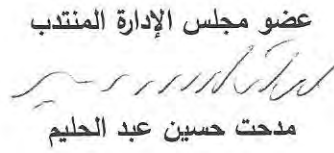 عضو مجلس الإدارة المنتدب
مدحت حسين عبد الحليم